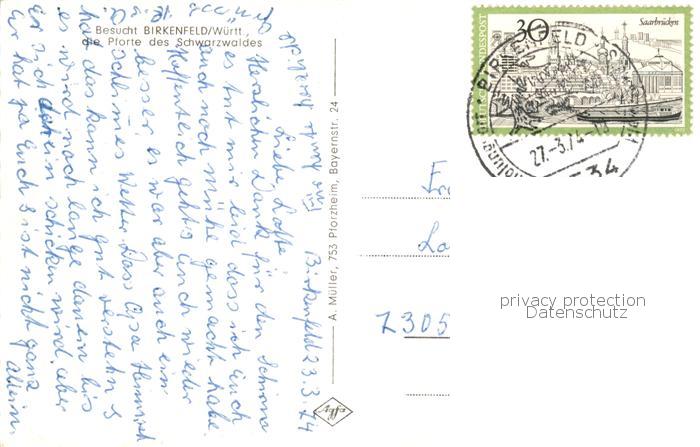 Besucht BIRKENFELD/Württ.,
die Pforte des Schwarzwaldes
A. Müller, 753 Pforzheim, Bayernstr. 24
Agfa
Birkenfeld 23.3.74
Liebe Lotte
Herzlichen Dank für den Schöne
es tut mir leid dass ich Euch
auch noch mühe gemacht habe.
Hoffentlich gehts Euch wieder
besser es war aber auch ein
schlimmes Wetter. Dass Opa Heimweh
hat das kann ich gut verstehn
es wird noch lange dauern bis
er sich drein schicken wird, aber
Er hat ja Euch & ist nicht ganz
allein.
30
Saarbrücken
DEUTSCHE BUNDESPOST
BIRKENFELD
27.-3.74
Fr
La
7305
privacy protection
Datenschutz